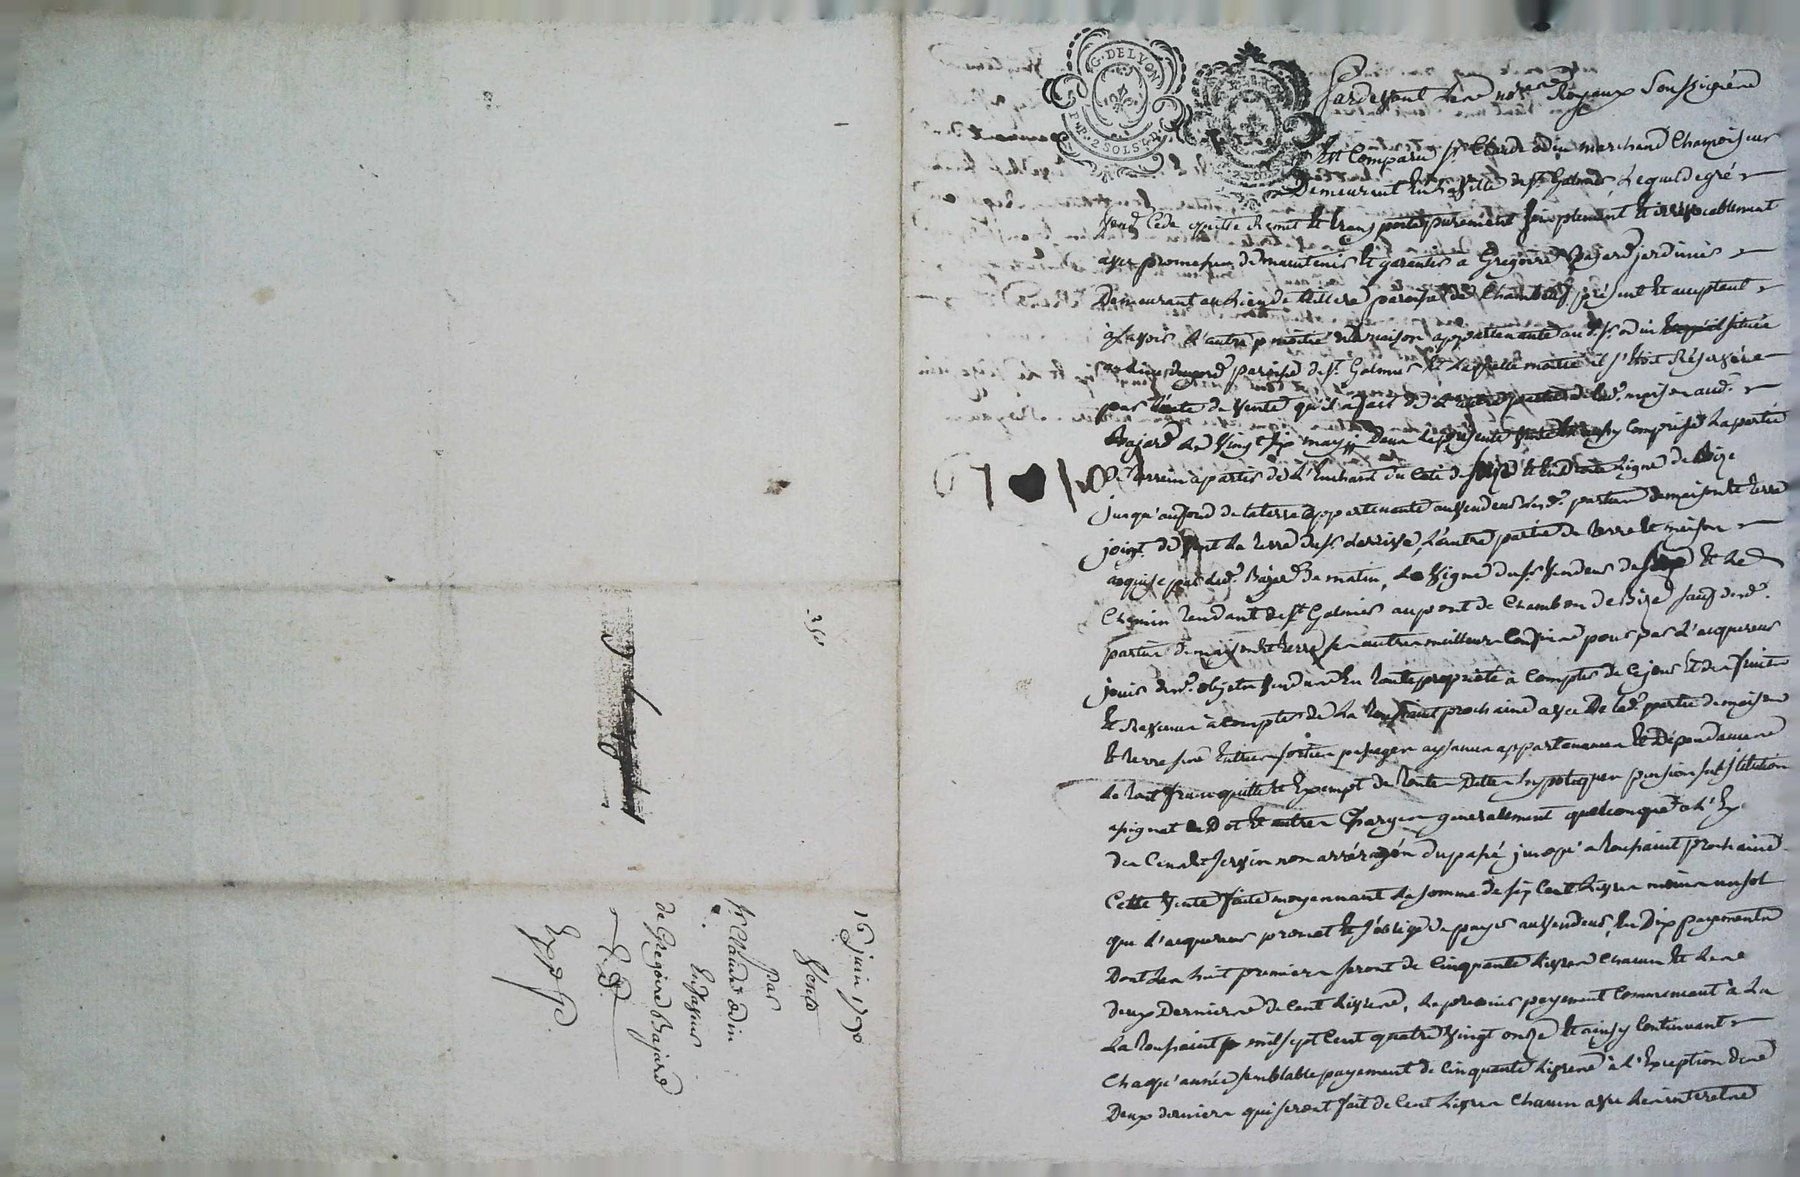 G. DE LYON
P. 2 SOLS 4 D.
Pardevant les nores Royaux Soussignés
Est Comparu sr Claude odin marchand Chamoiseur
Demeurant En la Ville de st Galmier, Lequel de gré
Vend Cede quitte Remet Et transporte purement simplement Et irrevocablement
avec promesse de maintenir Et garantir a Gregoire Bajard jardinier
Demeurant au lieu de paroisse de Chambœuf présent Et acceptant
a savoir L'autre moitié de maison appartenante audt sr odin située
paroisse de st Galmier Et Laquelle moitié il s'étoit Réservée
par L'acte de Vente qu'il a fait de L'autre partie de lade maison audt
Bajard Le Vingt six may Dans La presente Vente Est aussy Comprise La partie
de terrein a partir de L'Enchant du Coté de Et En droite Ligne de Bize
jusqu'au fond de la terre appartenante au Vendeur lesdes parties de maison Et terre
joigt de La terre du sr L'autre partie de terre Et maison
acquise par ledt Bajard de matin, La Vigne du sr Vendeur de Et Le
Chemin tendant de st Galmier au pont de Chambon de Bize sauf desdes
parties de maison Et terre ses autres meilleurs Confins pour par L'acquereur
jouir desdts objets Vendus En toute propriété à Compter de Ce jour Et des fruits
Et Revenus à compter de La toussaint prochaine avec De lade partie de maison
Et terre ses Entrées sorties passages aysances appartenances Et Dépendances
Le tout franc quitte Et Exempt de toutes Dettes hypoteques pension substitution
assignat de Dot Et autres Charges generalement quelconques a L'Ex
des Cens Et servis non arréragés du passé jusqu'a toussaint prochaine
Cette Vente faite moyennant La somme de six Cent Livres moins un sol
que L'acquereur promet Et s'oblige de payer au Vendeur, En Dix payements
Dont Les huit premiers seront de Cinquante Livres Chacun Et Les
deux Derniers de Cent Livres, Le premier payement Commencant à La
La toussaint mil sept Cent quatre Vingt onze Et ainsy Continuant
Chaqu'année semblable payement de Cinquante Livres à L'Exception des
Deux derniers qui seront fait de Cent Livres Chacun avec Les interets
16 juin 1790
Vente
par
sr Claude odin
En faveur
de Gregoire Bajard
Expd.